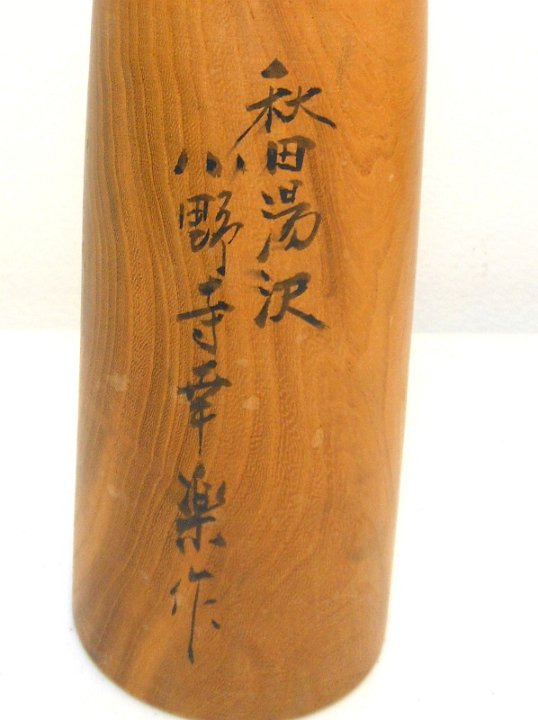 秋田湯沢
小野寺幸楽作